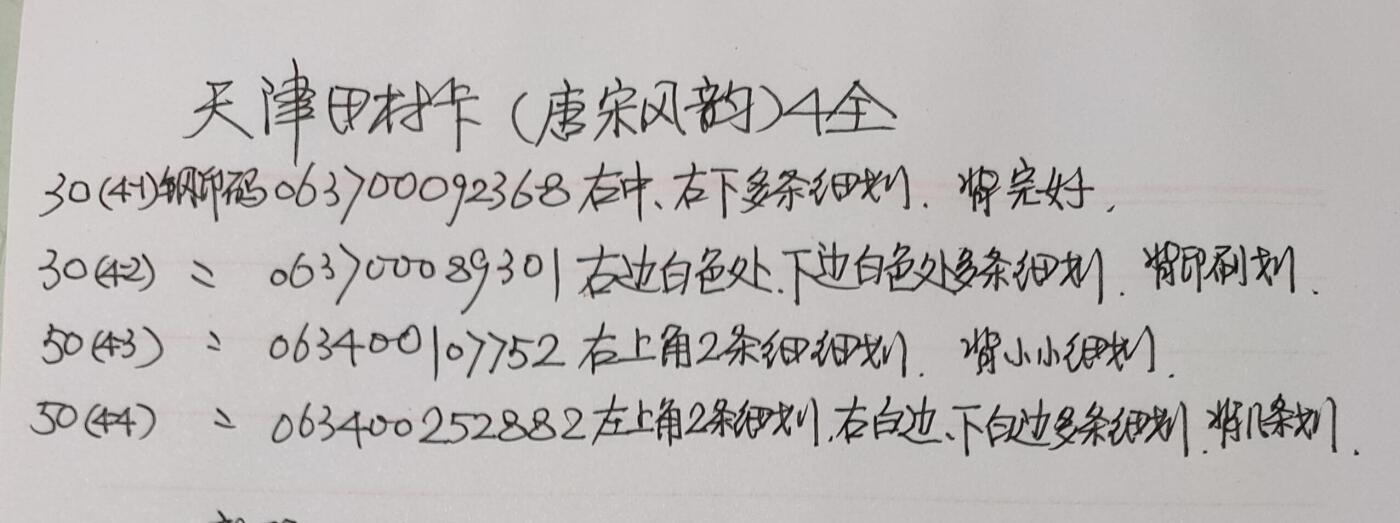 天津田村卡(唐宋风韵)4全
30(4-1)钢印码063700092368右中、右下多条细划.背完好.
30(4-2) 〃 063700089301右边白色处.下边白色处多条细划.背印刷划.
50(4-3) 〃 063400107752右上角2条细细划.背小小细划.
50(4-4) 〃 063400252882左上角2条细划.右白边、下白边多条细划.背几条划.